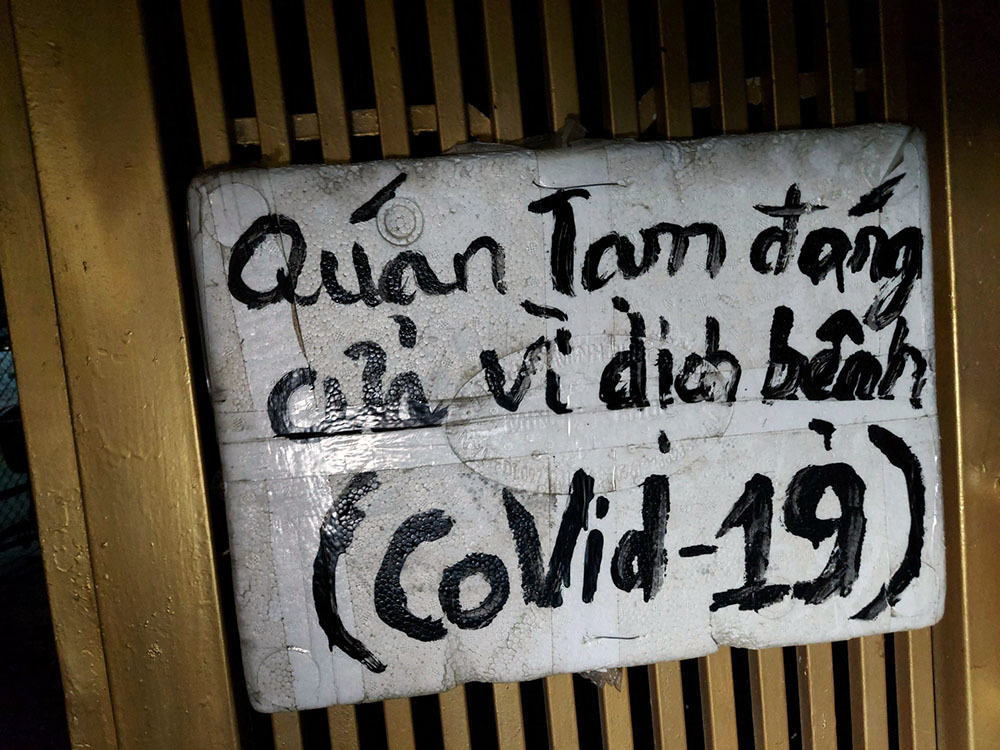 Quán Tạm đóng
cửa vì dịch bệnh
(CoVid-19)